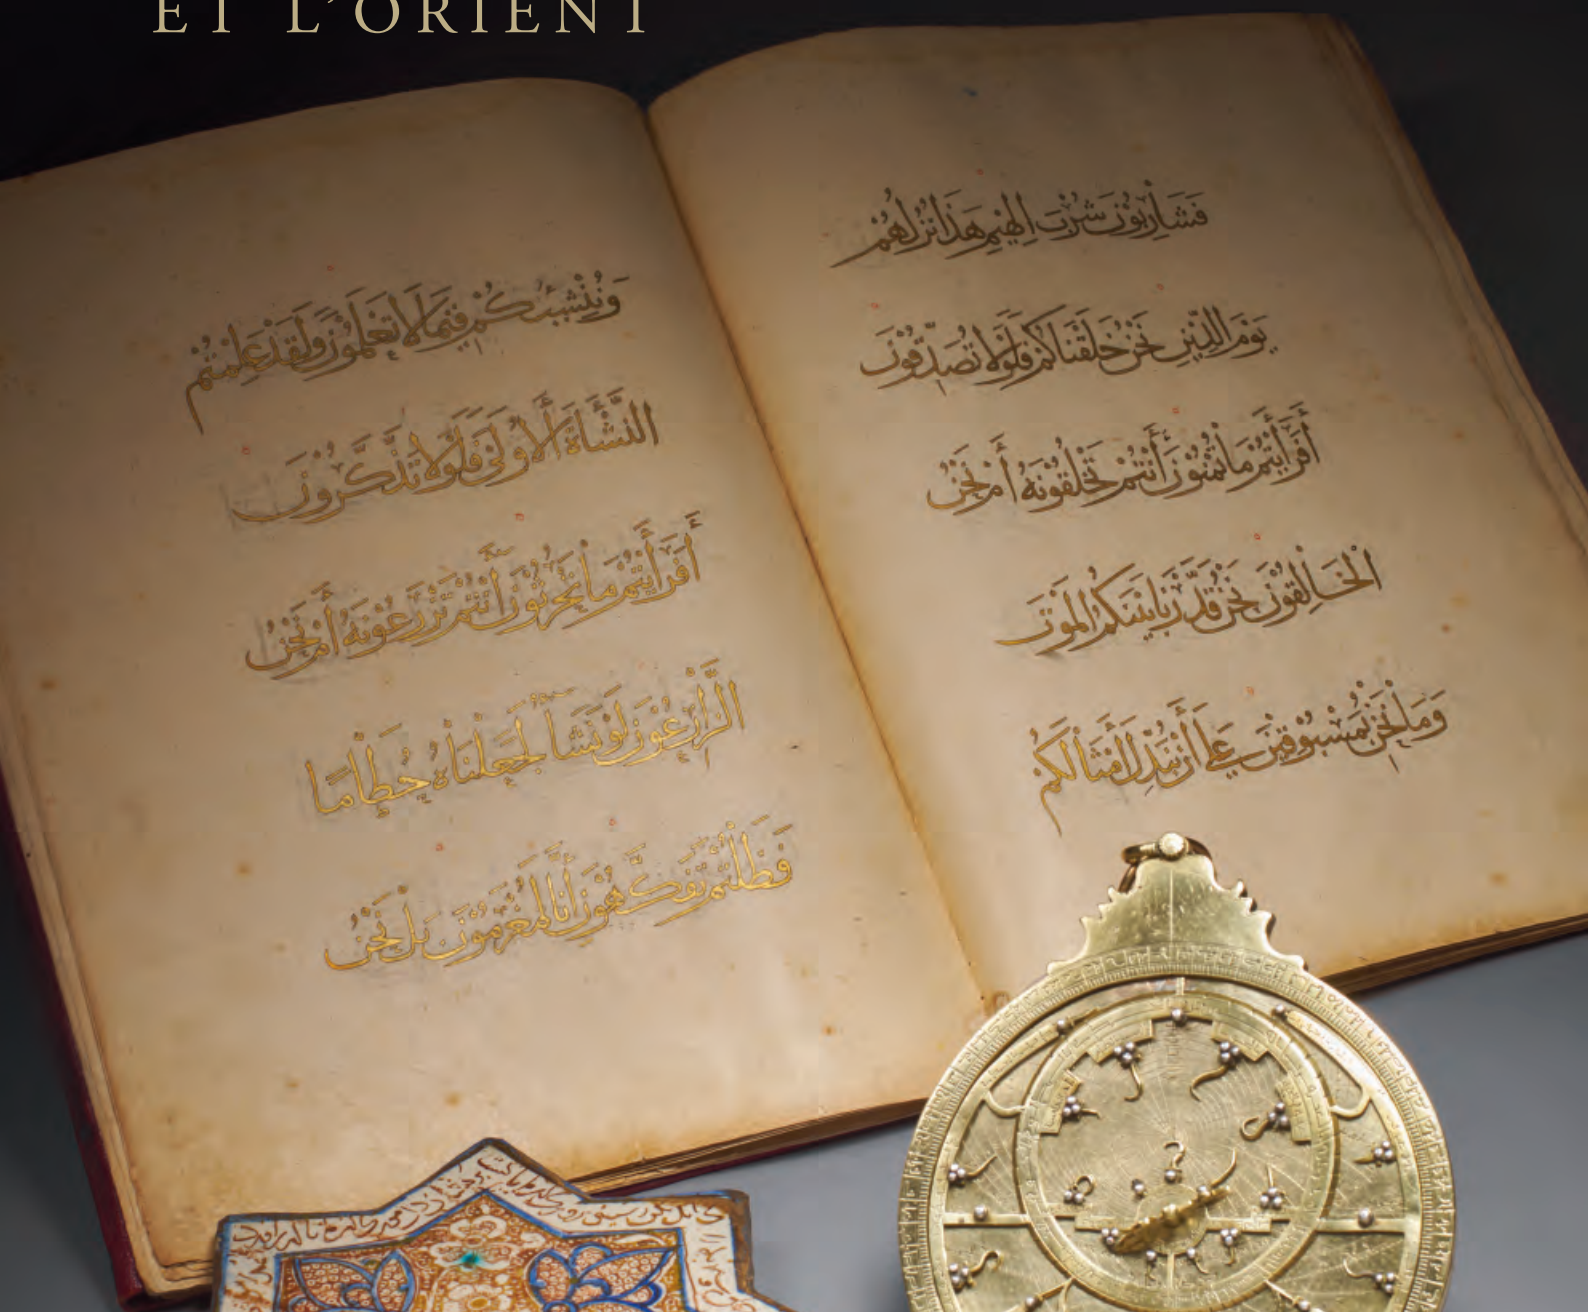 ET L'ORIENT
فَشَارِبُونَ شُرْبَ الْهِيمِ هَذَا نُزُلُهُمْ
يَوْمَ الدِّينِ نَحْنُ خَلَقْنَاكُمْ فَلَوْلَا تُصَدِّقُونَ
أَفَرَأَيْتُمْ مَا تُمْنُونَ أَأَنْتُمْ تَخْلُقُونَهُ أَمْ نَحْنُ
الْخَالِقُونَ نَحْنُ قَدَّرْنَا بَيْنَكُمُ الْمَوْتَ
وَمَا نَحْنُ بِمَسْبُوقِينَ عَلَى أَنْ نُبَدِّلَ أَمْثَالَكُمْ
وَنُنْشِئَكُمْ فِيمَا لَا تَعْلَمُونَ وَلَقَدْ عَلِمْتُمُ
النَّشْأَةَ الْأُولَى فَلَوْلَا تَذَكَّرُونَ
أَفَرَأَيْتُمْ مَا تَحْرُثُونَ أَأَنْتُمْ تَزْرَعُونَهُ أَمْ نَحْنُ
الزَّارِعُونَ لَوْ نَشَاءُ لَجَعَلْنَاهُ حُطَامًا
فَظَلْتُمْ تَفَكَّهُونَ إِنَّا لَمُغْرَمُونَ بَلْ نَحْنُ